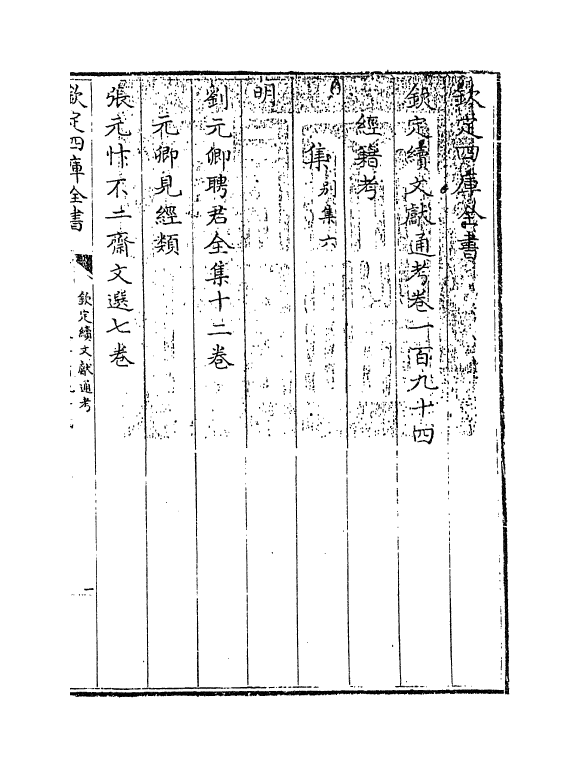 欽定四庫全書
欽定續文獻通考卷一百九十四
經籍考
集 别集六
明
劉元卿聘君全集十二卷
元卿見經類
張元忭不二齋文選七卷
欽定四庫全書
欽定續文獻通考
一